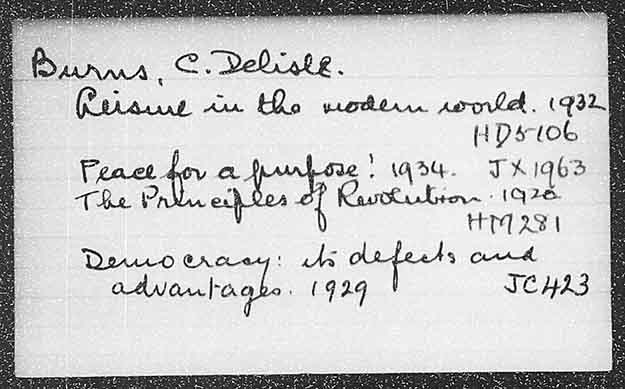 Burns, C. Delisle.
Leisure in the modern world. 1932
HD5106
Peace for a purpose! 1934. JX1963
The Principles of Revolution. 1920
HM281
Democracy: its defects and
advantages. 1929 JC423